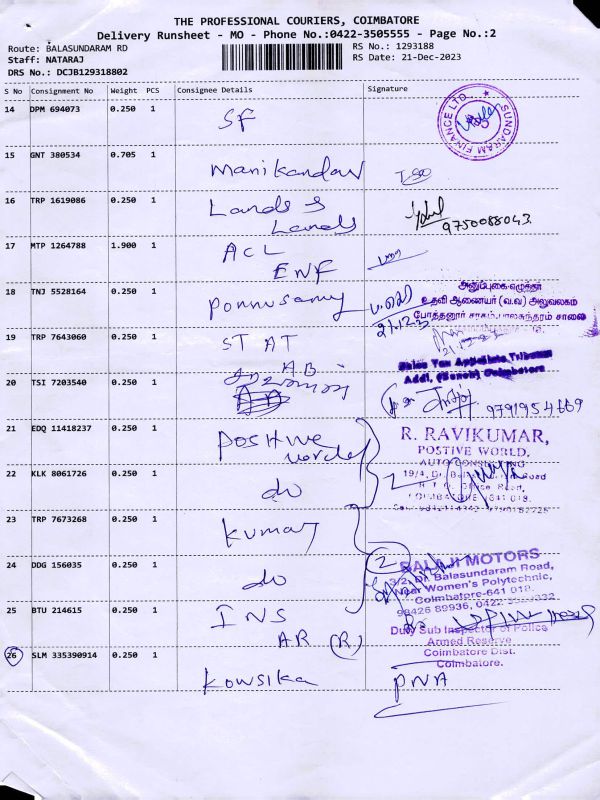 THE PROFESSIONAL COURIERS, COIMBATORE
Delivery Runsheet - MO - Phone No.:0422-3505555 - Page No.:2
Route: BALASUNDARAM RD
Staff: NATARAJ
DRS No.: DCJB129318802
RS No.: 1293188
RS Date: 21-Dec-2023
S No Consignment No Weight PCS Consignee Details Signature
14 DPM 694073 0.250 1 SF
SUNDARAM FINANCE LTD.
15 GNT 380534 0.705 1 Manikandan
16 TRP 1619086 0.250 1 Lands & Lands
9750088043.
17 MTP 1264788 1.900 1 ACL ENF
18 TNJ 5528164 0.250 1 Ponnusamy
21.12.3
அனுப்புகை எழுத்தர்
உதவி ஆணையர் (வ.வ) அலுவலகம்
போத்தனூர் சரகம், பாலசுந்தரம் சாலை
19 TRP 7643060 0.250 1 STAT
Sales Tax Appellate Tribunal
Addl. (Bench) Coimbatore
20 TSI 7203540 0.250 1 AB
9791954669
21 EDQ 11418237 0.250 1 Positive world
R. RAVIKUMAR,
POSTIVE WORLD,
AUTO CONSULTING
22 KLK 8061726 0.250 1 do
2
23 TRP 7673268 0.250 1 Kumar
24 DDG 156035 0.250 1 do
2
BALAJI MOTORS
3/2, Dr. Balasundaram Road,
Near Women's Polytechnic,
Coimbatore-641 018.
98426 89936, 0422
25 BTU 214615 0.250 1 INS AR (R)
Duty Sub Inspector of Police
Armed Reserve
Coimbatore Dist.
Coimbatore.
26 SLM 335390914 0.250 1 Kowsika
PNA